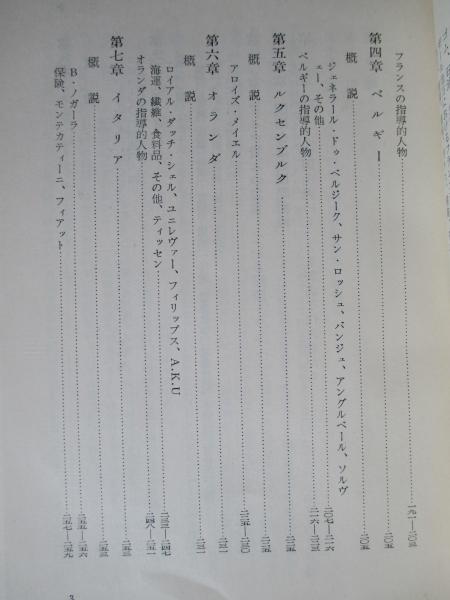 フランスの指導的人物……一九一―二〇三
第四章　ベルギー……二〇五
概説……二〇五
ジェネラール・ドゥ・ベルジーク、サン・ロッシュ、バンジュ、アングルベール、ソルヴ
ェー、その他……二〇七―二一六
ベルギーの指導的人物……二一六―二二三
第五章　ルクセンブルク……二二五
概説……二二五
アロイズ・メイエル……二二五―二三〇
第六章　オランダ……二三一
概説……二三一
ロイアル・ダッチ・シェル、ユニレヴァー、フィリップス、A.K.U
海運、繊維、食料品、その他、ティッセン……二三三―二四七
オランダの指導的人物……二四八―二五一
第七章　イタリア……二五三
概説……二五三
B・ノガーラ……二五五―二五六
保険、モンテカティーニ、フィアット……二五七―二五九
3